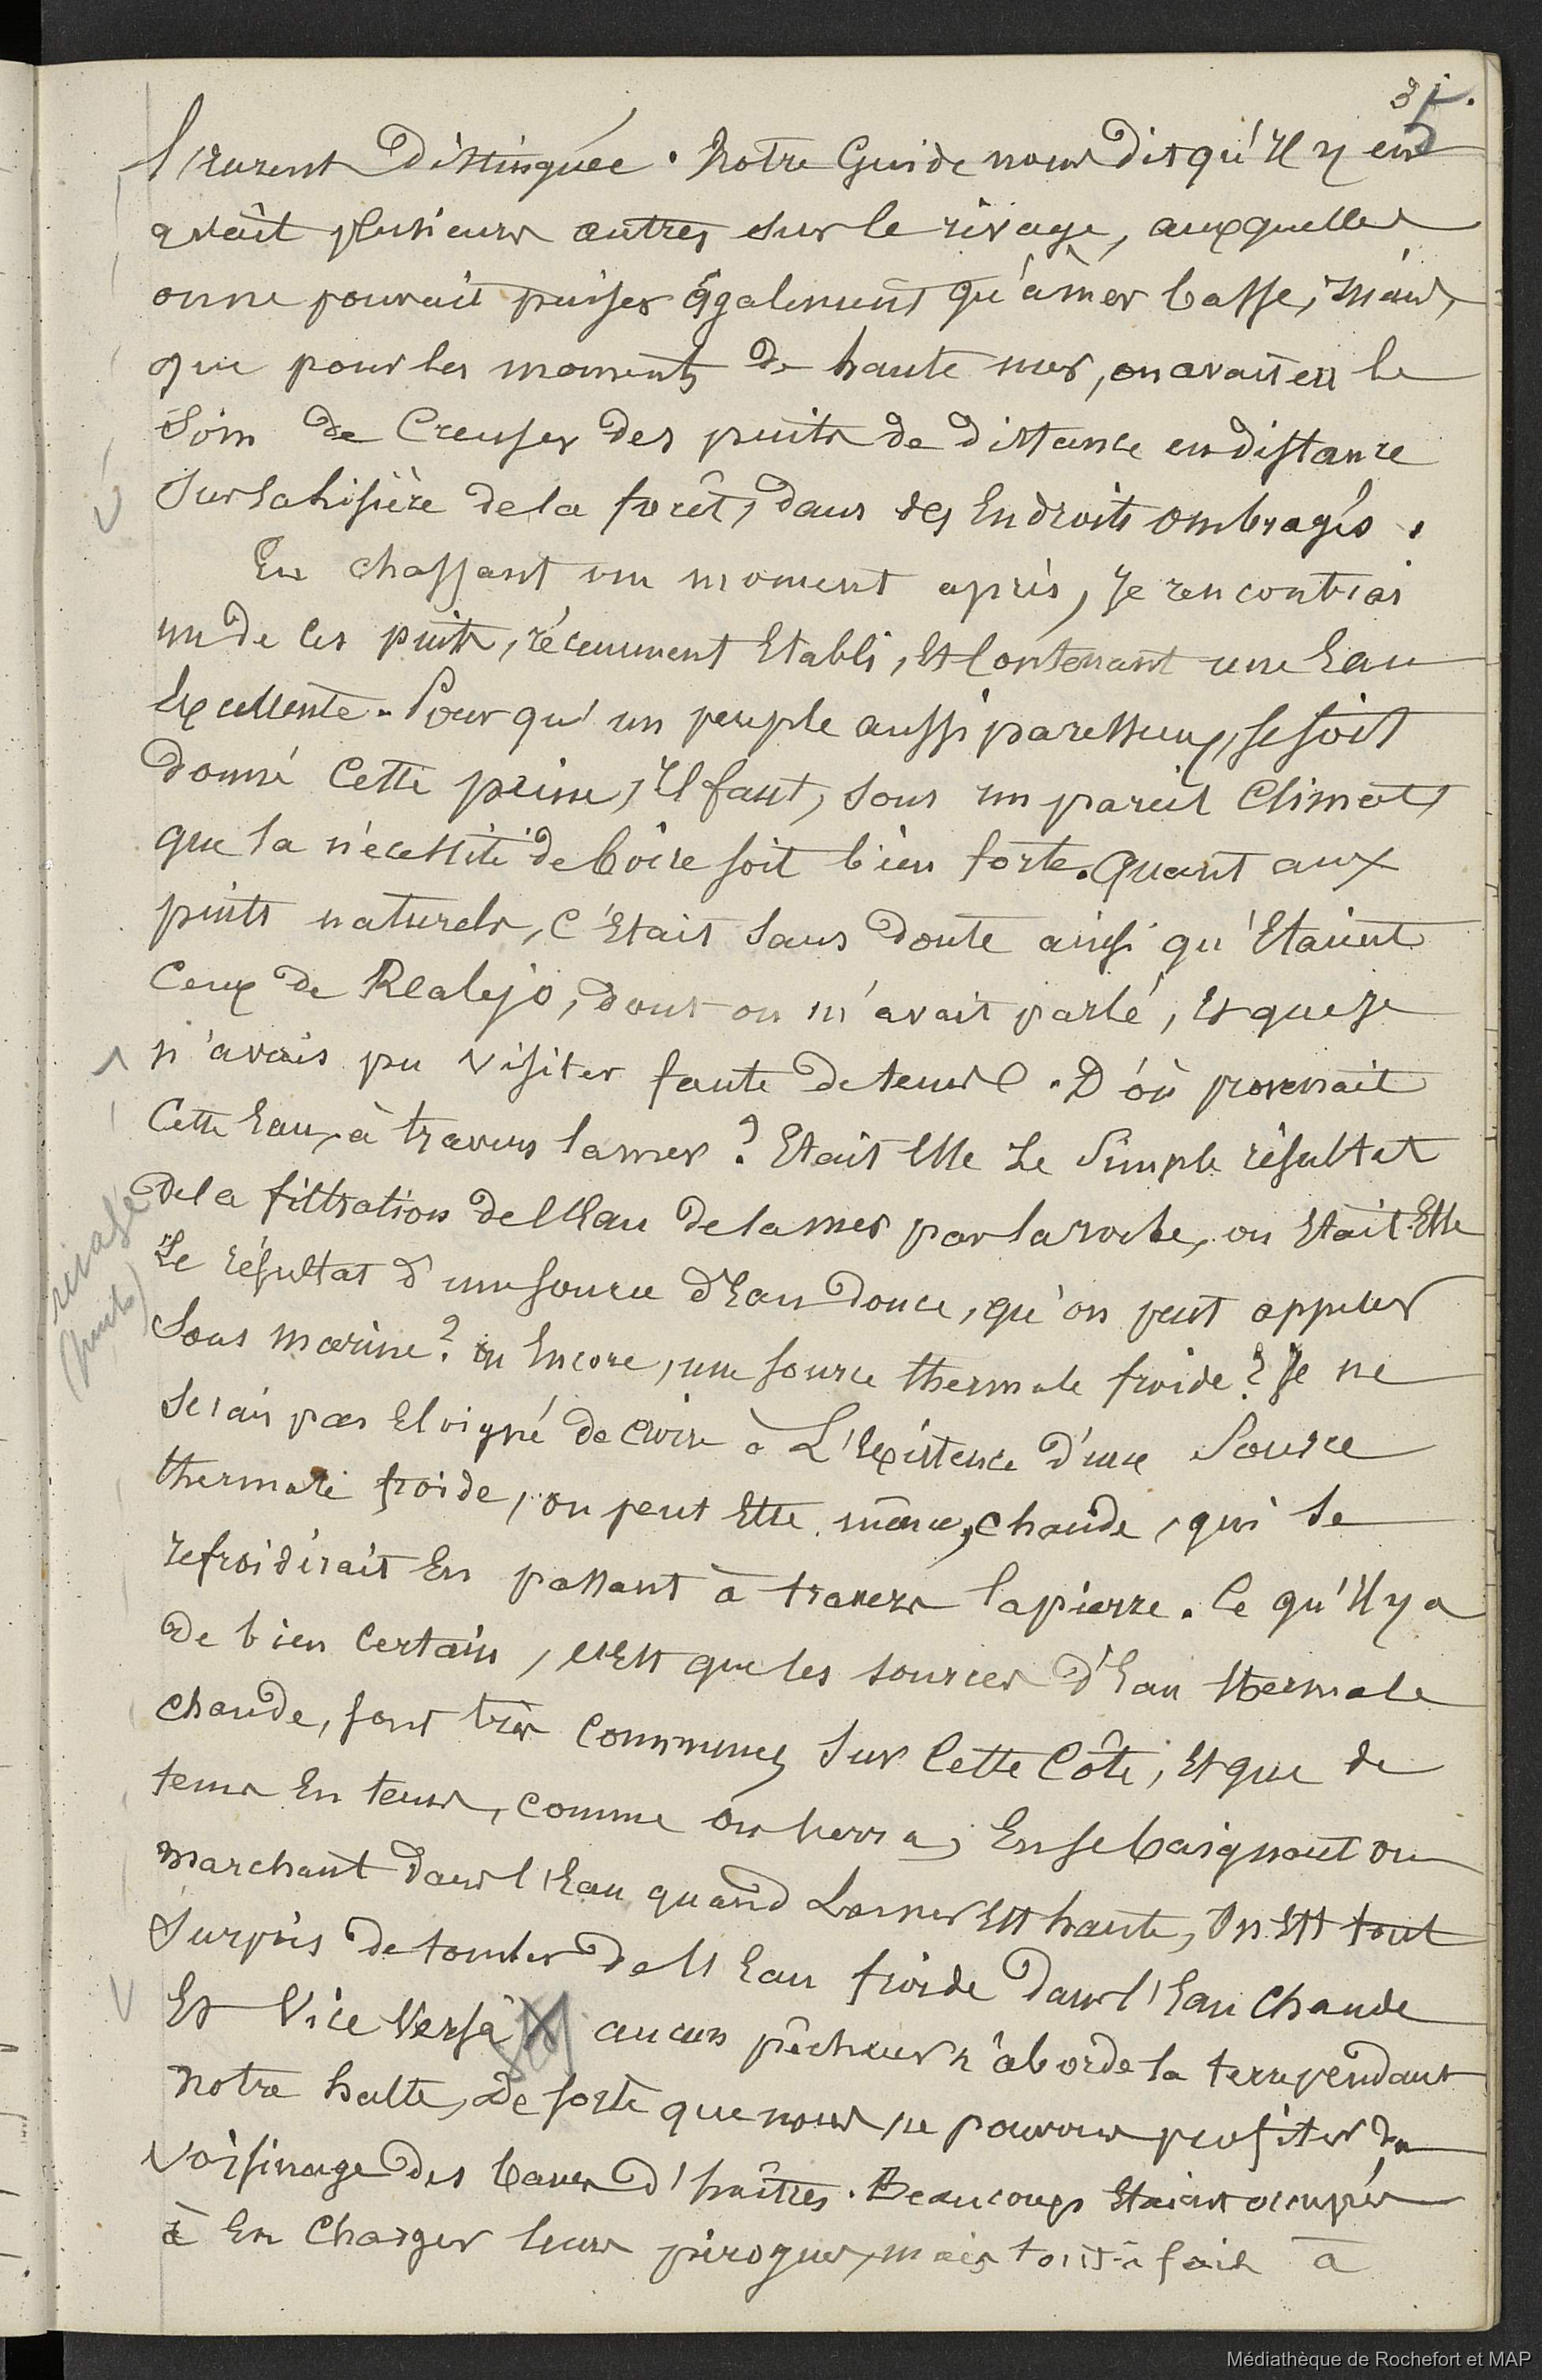 35.
l'eurent distinguée. Notre Guide nous dit qu'Il y en
avait plusieurs autres sur le rivage, auxquelles
on ne pouvait puiser Egalement qu'à mer basse, mais,
que pour les moments de haute mer, on avait eu le
soin de Creuser des puits de distance en distance
sur la lisière de la forêt, dans des Endroits ombragés.
En chassant un moment après, Je rencontrai
un de ces puits, récemment Etabli, Et Contenant une Eau
Excellente. Pour qu'un peuple aussi paresseux, se soit
donné Cette peine, Il faut, sous un pareil Climat,
que la nécessité de boire soit bien forte. Quant aux
puits naturels, C'Etait sans doute ainsi qu'Etaient
Ceux de Realejo, dont on m'avait parlé, Et que Je
n'avais pu visiter faute de tems. D'où provenait
Cette Eau, à travers la mer? Etait Elle Le Simple résultat
de la filtration de l'Eau de la mer par la roche, ou Etait-Elle
Le résultat d'une source d'Eau douce, qu'on peut appeler
sous marine? ou Encore, une source thermale froide? Je ne
serais pas Eloigné de croire à L'Existence d'une Source
thermale froide, ou peut Etre même, chaude, qui se
refroidirait En passant à travers la pierre. Ce qu'Il y a
de bien Certain, c'Est que les sources d'Eau thermale
chaude, sont très Communes sur Cette Côte, Et que de
tems En tems, comme on verra, En se baignant ou
marchant dans l'Eau quand La mer Est haute, On Est tout
surpris de tomber de l'Eau froide dans l'Eau Chaude
Et Vice Versâ aucun pêcheur n'aborde la terre pendant
notre halte, de sorte que nous ne pouvons profiter du
voisinage des bancs d'huîtres. Beaucoup Etaient occupés
à En Charger leurs pirogues, mais tout-à fait à
rivage
(puits)